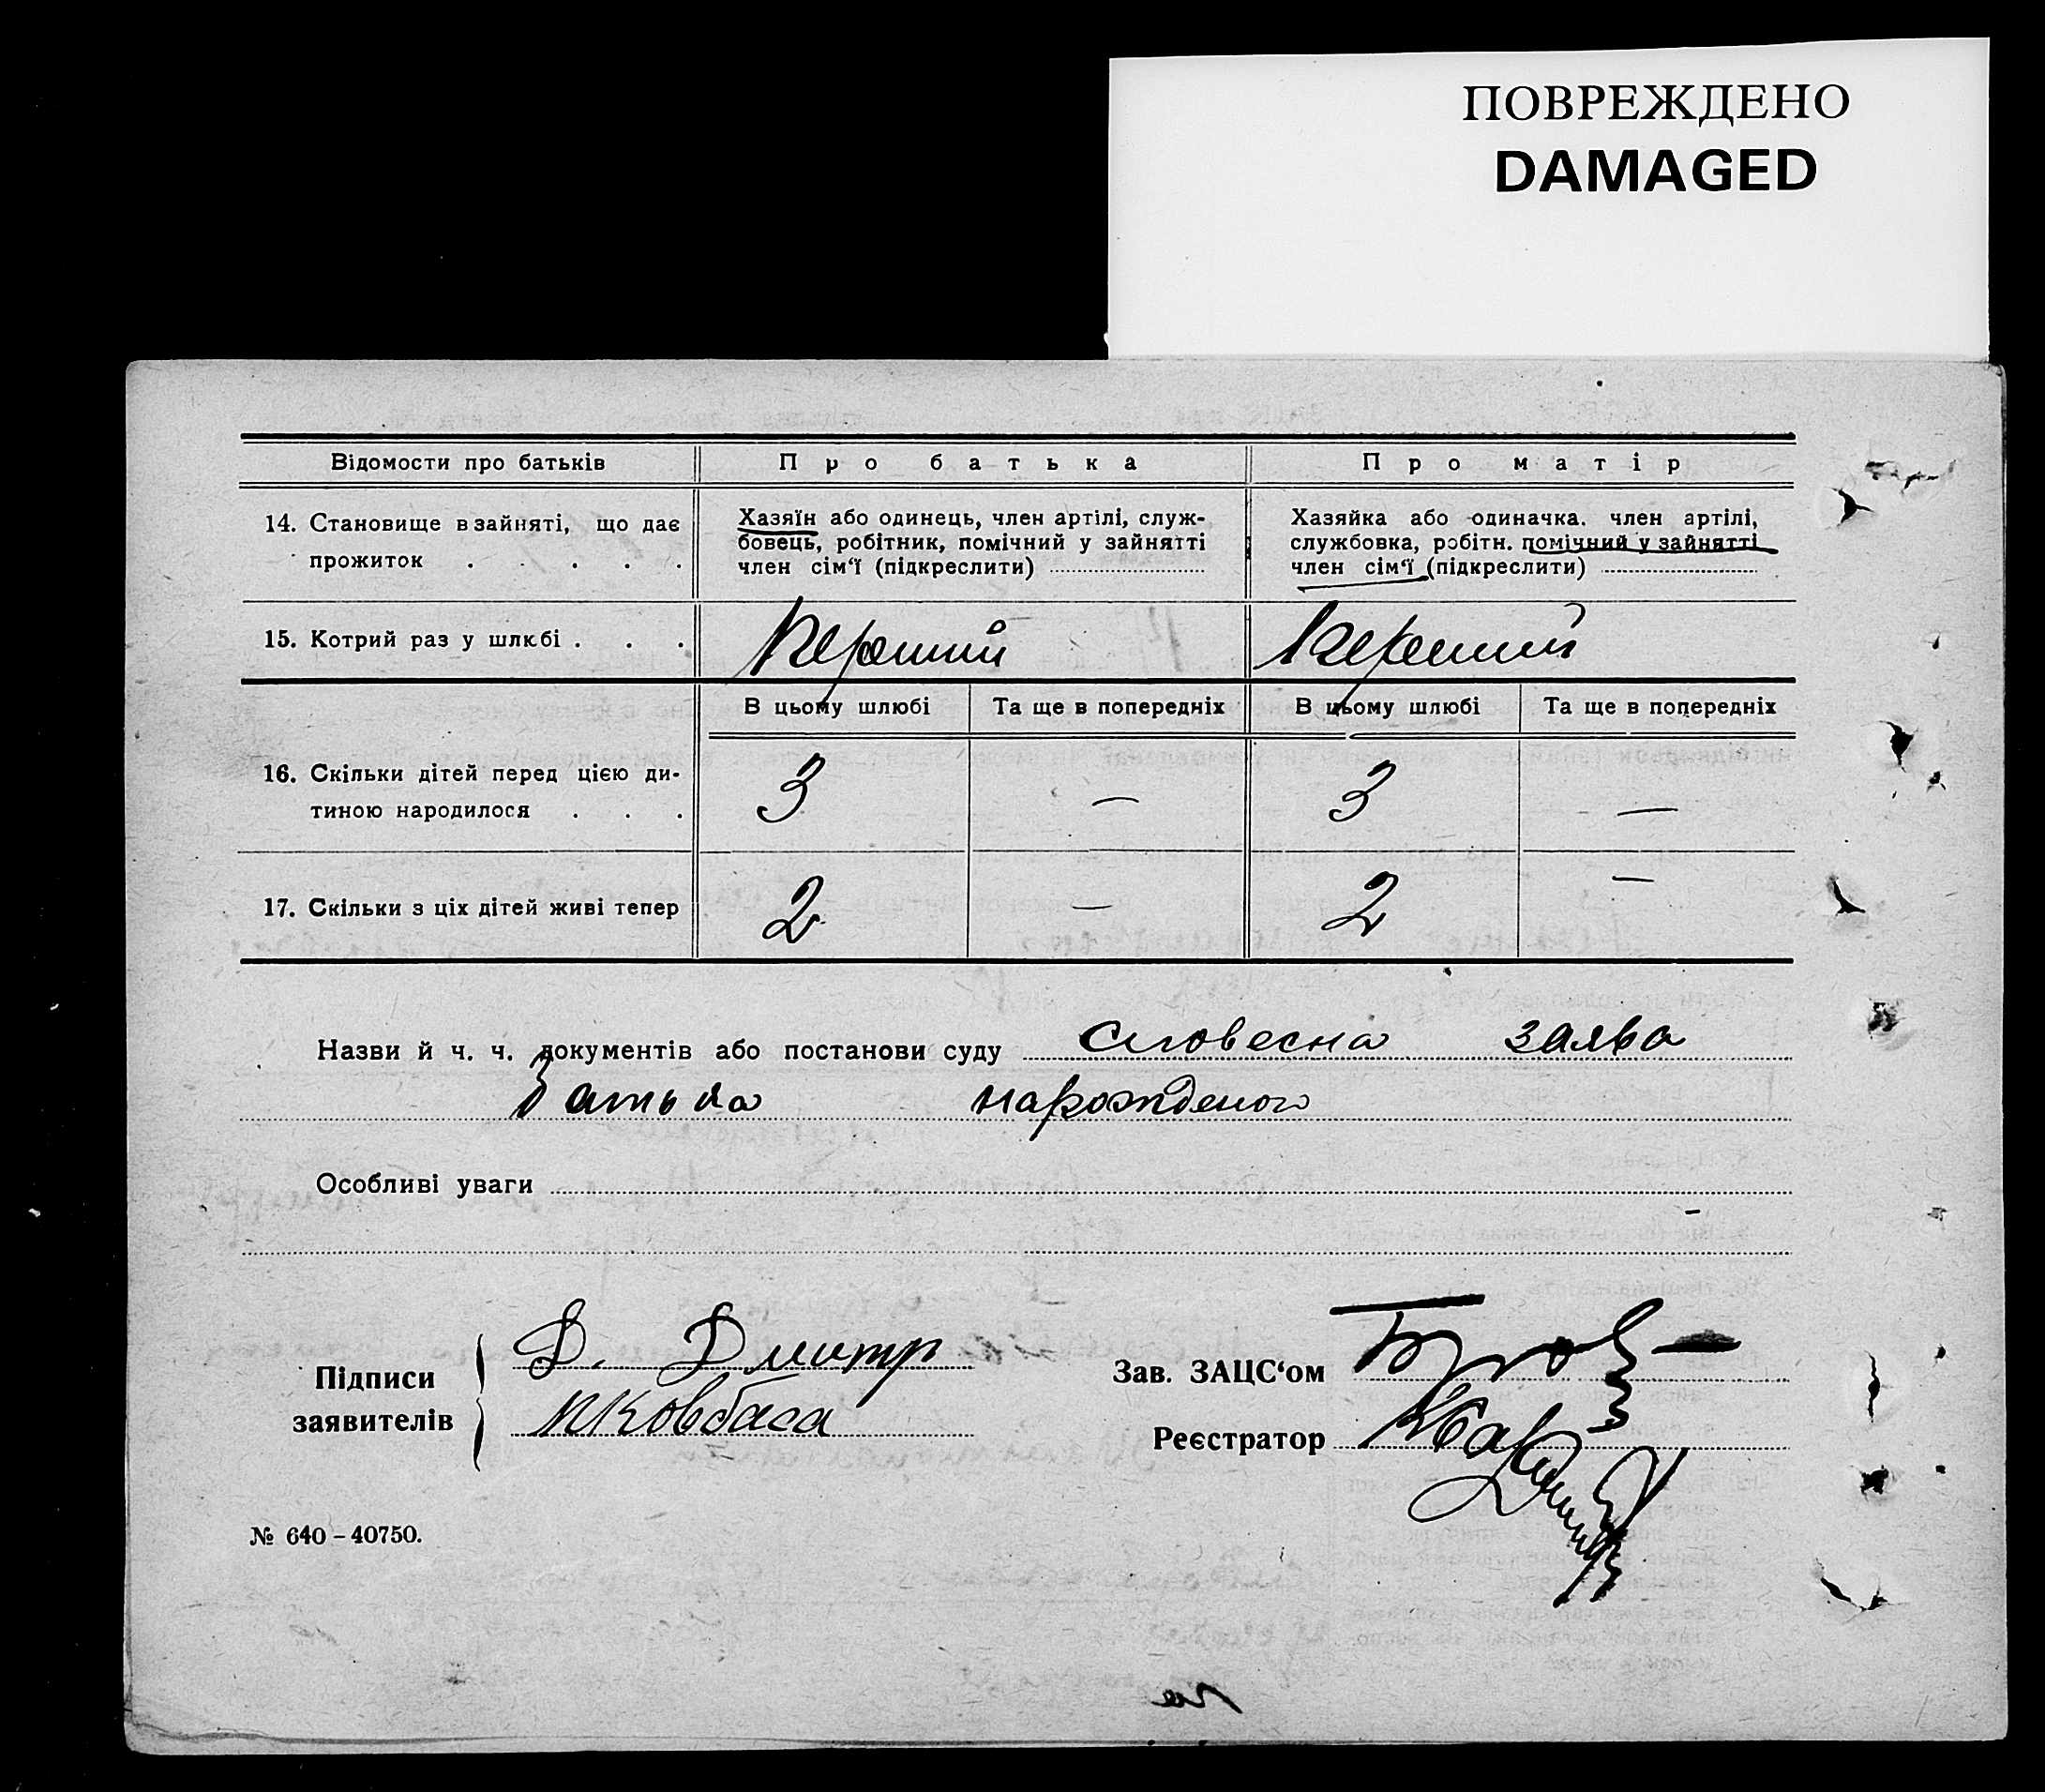 ПОВРЕЖДЕНО
DAMAGED
Відомости про батьків
Про батька
Про матір
14. Становище в зайняті, що дає
прожиток . . . . .
Хазяїн або одинець, член артілі, служ-
бовець, робітник, помічний у зайнятті
член сім‘ї (підкреслити)
Хазяйка або одиначка. член артілі,
службовка, робітн. помічний у зайнятті
член сім‘ї (підкреслити)
15. Котрий раз у шлюбі . . .
Перший
Перший
В цьому шлюбі
Та ще в попередніх
В цьому шлюбі
Та ще в попередніх
16. Скільки дітей перед цією ди-
тиною народилося . . .
3 — 3 —
17. Скільки з ціх дітей живі тепер
2 — 2 —
Назви й ч. ч. документів або постанови суду словесна заява
батька нарожденого
Особливі уваги
Підписи
заявителів
Д. Дмитр
Ковбаса
Зав. ЗАЦС‘ом
Реєстратор
№ 640 – 40750.